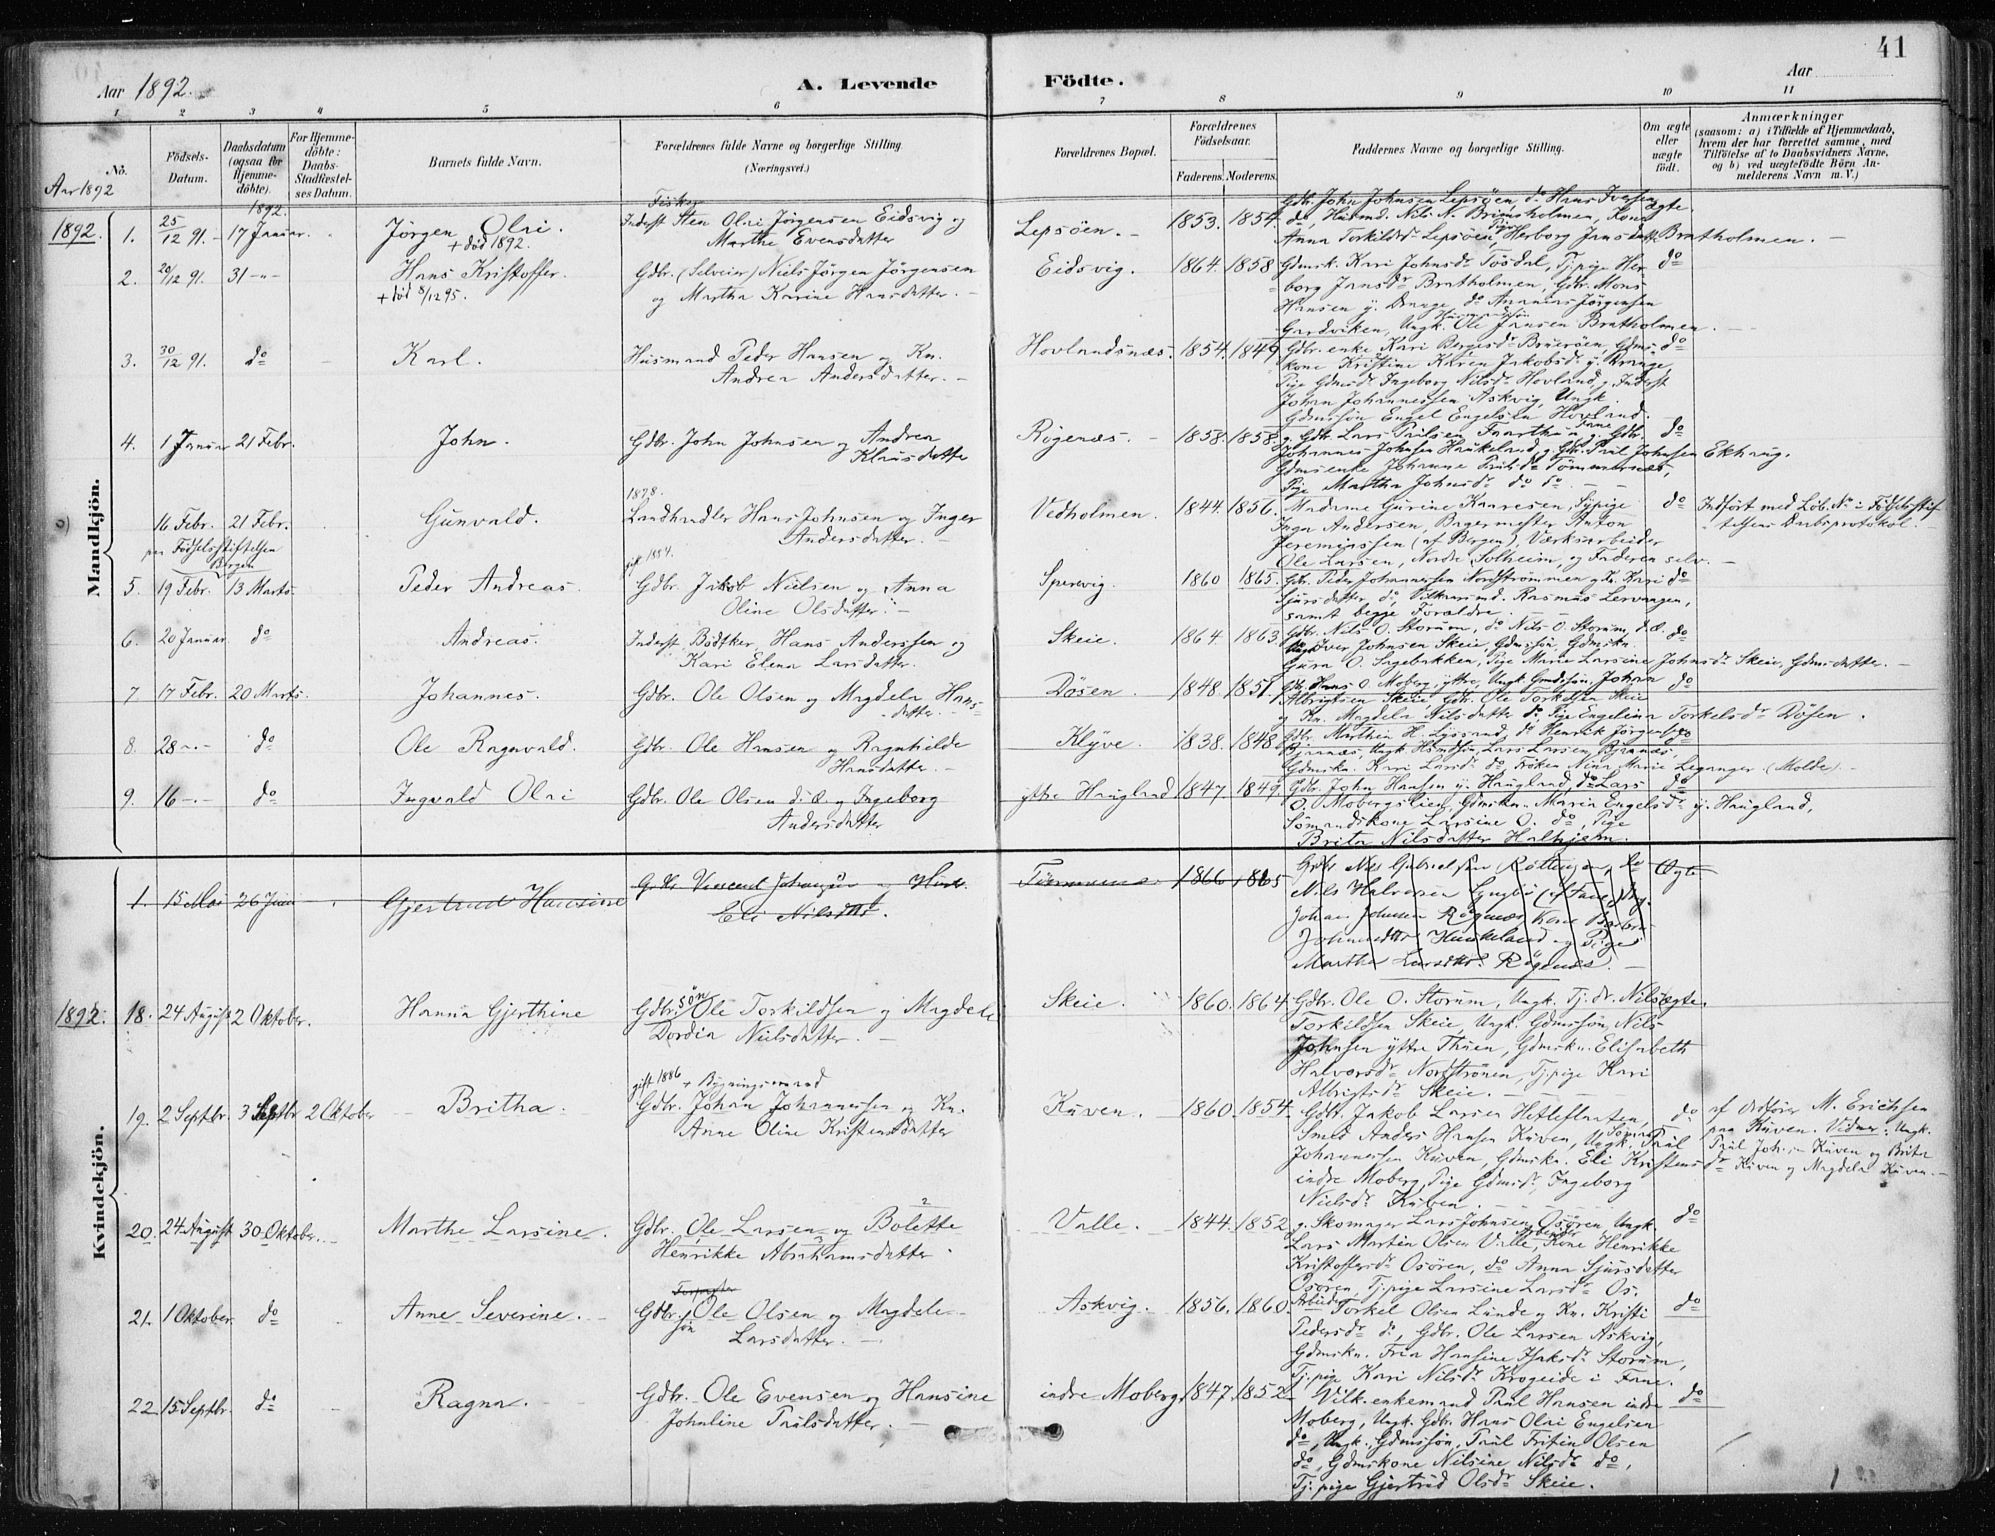 41
Aar 1892. A. Levende Födte. Aar
1 2 3 4 5 6 7 8 9 10 11
No.
Födsels-Datum.
Daabsdatum (ogsaa for Hjemmedöbte).
For Hjemmedöbte: Daabs-Stadfæstelses Datum.
Barnets fulde Navn.
Forældrenes fulde Navne og borgerlige Stilling (Næringsvei.)
Forældrenes Bopæl.
Forældrenes Födselsaar.
Faderens. Moderens.
Faddernes Navne og borgerlige Stilling.
Om ægte eller uægte födt.
Anmærkninger
(saasom: a) i Tilfælde af Hjemmedaab,
hvem der har forrettet samme, med
Tilföielse af to Daabsvidners Navne,
og b) ved uægtefödte Börn An-
melderens Navn m. V.)
Aar 1892
Mandkjön.
1892.
1. 25/12 91. 17 Januar. 1892.
Jörgen Olai.
+ död 1892.
Fisker
Inderst Sten Olai Jörgensen Eidsvig og
Marthe Evensdatter
Lepsöen. 1853. 1854.
Gdbr. John Johnsen Lepsöen, do Hans Iversen
do, Husmd. Nils N. Brimsholmen, Kone
Anna Torkildsdr Lepsöen, Pige Herborg Jansdatt. Bratholmen.
ægte.
2. 20/12 91. 31 -"-
Hans Kristoffer.
+ död 8/12 95.
Gdbr. (Selveier) Niels Jörgen Jörgensen
og Martha Karine Hansdatter.
Eidsvig. 1864. 1858
Gdmsk. Kari Johnsdr Tösdal, Tj.pige Her-
borg Jansdr Bratholmen, Gdbr. Mons
Hansen y. Drange, do Ananias Jörgensen
Gardviken, Ungk. Husmandssön Ole Jansen Bratholmen.
do
3. 30/12 91. do
Karl.
Husmand Peder Hansen og Kn.
Andrea Andersdatter.
Hovlandsnæs. 1854. 1849.
Gdbr. enke Kari Bergesdr Bruröen, Gdms-
kone Kristine Karen Jakobsdr y. Drange,
Pige Gdmsdr Ingeborg Nilsdr Hovland, g. Inderst
Johan Johannessen Askvig, Ungk.
Gdmssön Engel Engelsen Hovland.
do
4. 1 Januar 21 Febr.
John.
Gdbr. John Johnsen og Andrea
Klausdatter
Rögenæs. 1858. 1858.
g. Gdbr. Lars Paulsen Faarthun Fane g. Gdbr.
Johannes Johnsen Haukeland, g. Gdr. Paul Johnsen Ekhaug.
Gdmsenke Johanne Paulsdr Tömmernæs,
Pige Martha Johnsdr do do
do
16 Febr. 21 Febr.
paa Födselsstiftelsen
Bergen
Gunvald.
1878.
Landhandler Hans Johnsen og Inger
Andersdatter.
Vedholmen. 1844. 1856.
Madame Gurine Knaresen, Sypige
Inga Andersen, Bagermester Anton
Jeremiassen (af Bergen), Værksarbeider
Ole Larsen, Nordre Solheim, og Faderen selv.
do
Indfört med Löb. No i Födselsstif-
telsens Daabsprotokol.
5. 19 Febr. 13 Marts.
Peder Andreas.
gift 1884.
Gdbr. Jakob Nielsen og Anna
Oline Olsdatter.
Sperevig. 1860 1865.
Gdbr. Peder Johannessen Nordströmmen g. Kn. Kari
Sjursdatter, do, Vilkaarsmd. Rasmus Lervangen,
samt begge Forældre.
do
6. 20 Januar. do
Andreas.
Inderst Bödtker Hans Anderssen og
Kari Elena Larsdatter.
Skeie. 1864. 1863.
Gdbr. Nils O. Storum, do Nils O. Storum, d. æ.
Ungk Iver Johnsen Skeie, Gdmssön, Gdmskn.
Gura O. Sagebakken, Pige Marie Larsine Johnsdr Skeie, Gdmsdatter.
do
7 17 Febr. 20 Marts.
Johannes.
Gdbr. Ole Olsen og Magdela Hans-
datter.
Dösen. 1848. 1851.
Gdbr. Hans O. Moberg, yttre, Ungk. Gmdssön, Johan
Albrigtsen Skeie, Gdbr. Ole Torkelsen Skeie
og Kn. Magdela Nilsdatter do, Pige Engelina Torkelsdr Dösen.
do
8. 28 -"- do
Ole Ragnvald.
Gdbr. Ole Hansen og Ragnhilde
Hansdatter.
Klyve. 1838. 1848.
Gdbr. Marthin H. Lyssand, do Henrik Jörgensen
Bjørnæs, Ungk. Lars Larsen Björnæs,
Gdmskn. Kari Larsdr do, Fröken Nina Marie Leganger (Molde).
do
9. 16 -"- do
Ingvald Olai
Gdbr. Ole Olsen d. æ. og Ingeborg
Andersdatter
yttre Haugland 1847. 1849.
Gdbr. John Hansen y. Haugland, do Lars
O. Mobergslien, Gdmskn. Maria Engelsdr y. Haugland,
Sömandskone Larsine O. do, Pige
Brita Nilsdatter Halhjem.
do
Kvindekjön.
1. 15 Mai 26 Juni
Gjertrud Hansine
Gdbr Vincent Johannsön og Hust.
Eli Nilsdtr.
1866. 1865
Gdbr Nils Gabrielsen Röttingen, do
Nils Halvorsen Lyngbö (af Fane), Ung.
Johan Johnsen Rögenæs, Kone Barbra
Johannesdtr Haukeland og Pige
Marthe Larsdtr Rögenæs.
Ægte
1892.
18. 24 August 2 Oktober.
Hanna Gjerthine
Gdbr. sön Ole Torkildsen og Magdela
Dordia Nielsdatter.
Skeie. 1860. 1864
Gdbr. Ole O. Storum, Ungk. Tj. dr. Nils
Torkildsen Skeie, Ungk. Gdmssön, Nils
Johnsen yttre Thuen, Gdmskn. Elisabeth
Halvorsdr Nordströnen, Tj.pige Kari
Albrigtsdr Skeie.
ægte.
19. 2 Septbr. 3 Septbr 2 Oktober
Britha.
gift 1886 + Bygningsmand
Gdbr. Johan Johannessen og Kn.
Anne Oline Kristensdatter
Kuven. 1860. 1854.
Gdbr. Jakob Larsen Hetleflaaten,
Smed Anders Hansen Kuven, Ungk. Sömd Paul
Johannessen Kuven, Gdmskn. Eli Kristensdr
indre Moberg, Pige Gdmsdr, Ingeborg
Nielsdr Kuven.
do
af Ordförer M. Erichsen
paa Kuven. Vidner: Ungk.
Paul Joh.sn Kuven og Brita
Kuven og Magdela Kuven.
20. 24 August 30 Oktober.
Marthe Larsine.
Gdbr. Ole Larsen og Bolette
Henrikke Abrahamsdatter
Valle. 1844. 1852
g. Skomager Lars Johnsen Osören, Ungk.
Lars Martin Olsen Valle, Kone Henrikke
Kristoffersdr Osören, do Anna Sjursdatter
Osören, Tj.pige Larsine Larsdr Os.
do
21. 1 Oktober. do
Anne Severine.
Forpagter
Gdbr. sön Ole Olsen og Magdele
Larsdatter.
Askvig. 1856. 1860.
Arbeider Torkel Olsen Lunde g Kn. Kristi
Pedersdr do, Gdbr. Ole Larsen Askvig,
Gdmskn. Fria Hansine Isaksdr Storum,
Tj.pige Kari Nilsdr Krogeide i Fane.
do
22 15 Septbr. do
Ragna.
Gdbr. Ole Evensen og Hansine
Johnline Paulsdatter.
indre Moberg 1847. 1852
Vilk. enkemand Paul Hansen indre
Moberg, Ungk. Gdbr. Hans Olai Engelsen
do, Ungk. Gdmssön, Paul Fritin Olsen
do, Gdmskone Nilsine Nilsdr do,
Tj.pige Gjertrud Olsdr Skeie.
do